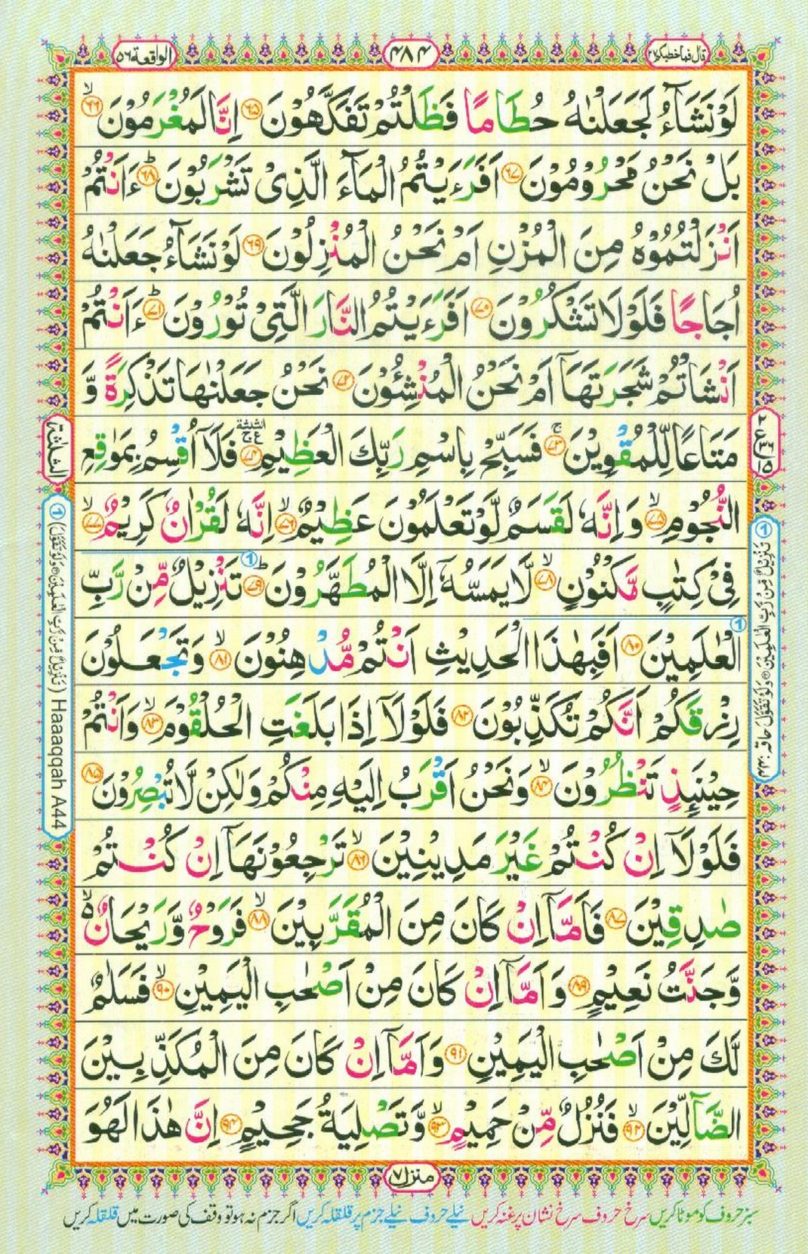 قال فما خطبکم ۲۷
۴۸۴
الواقعة ۵۶
لَوْ نَشَآءُ لَجَعَلْنٰهُ حُطَامًا فَظَلْتُمْ تَفَكَّهُوْنَ ﴿۶۵﴾ اِنَّا لَمُغْرَمُوْنَ ﴿۶۶﴾ۙ
بَلْ نَحْنُ مَحْرُوْمُوْنَ ﴿۶۷﴾ اَفَرَءَيْتُمُ الْمَآءَ الَّذِىْ تَشْرَبُوْنَ ﴿۶۸﴾ؕ ءَاَنْتُمْ
اَنْزَلْتُمُوْهُ مِنَ الْمُزْنِ اَمْ نَحْنُ الْمُنْزِلُوْنَ ﴿۶۹﴾ لَوْ نَشَآءُ جَعَلْنٰهُ
اُجَاجًا فَلَوْلَا تَشْكُرُوْنَ ﴿۷۰﴾ اَفَرَءَيْتُمُ النَّارَ الَّتِىْ تُوْرُوْنَ ﴿۷۱﴾ؕ ءَاَنْتُمْ
اَنْشَاْتُمْ شَجَرَتَهَآ اَمْ نَحْنُ الْمُنْشِئُوْنَ ﴿۷۲﴾ نَحْنُ جَعَلْنٰهَا تَذْكِرَةً وَّ
مَتَاعًا لِّلْمُقْوِيْنَ ﴿۷۳﴾ۚ فَسَبِّحْ بِاسْمِ رَبِّكَ الْعَظِيْمِ ﴿۷۴﴾ فَلَآ اُقْسِمُ بِمَوٰقِعِ
النُّجُوْمِ ﴿۷۵﴾ۙ وَاِنَّهٗ لَقَسَمٌ لَّوْ تَعْلَمُوْنَ عَظِيْمٌ ﴿۷۶﴾ۙ اِنَّهٗ لَقُرْاٰنٌ كَرِيْمٌ ﴿۷۷﴾ۙ
فِىْ كِتٰبٍ مَّكْنُوْنٍ ﴿۷۸﴾ۙ لَّا يَمَسُّهٗٓ اِلَّا الْمُطَهَّرُوْنَ ﴿۷۹﴾ؕ تَنْزِيْلٌ مِّنْ رَّبِّ
الْعٰلَمِيْنَ ﴿۸۰﴾ اَفَبِهٰذَا الْحَدِيْثِ اَنْتُمْ مُّدْهِنُوْنَ ﴿۸۱﴾ۙ وَتَجْعَلُوْنَ
رِزْقَكُمْ اَنَّكُمْ تُكَذِّبُوْنَ ﴿۸۲﴾ فَلَوْلَآ اِذَا بَلَغَتِ الْحُلْقُوْمَ ﴿۸۳﴾ۙ وَاَنْتُمْ
حِيْنَئِذٍ تَنْظُرُوْنَ ﴿۸۴﴾ۙ وَنَحْنُ اَقْرَبُ اِلَيْهِ مِنْكُمْ وَلٰكِنْ لَّا تُبْصِرُوْنَ ﴿۸۵﴾
فَلَوْلَآ اِنْ كُنْتُمْ غَيْرَ مَدِيْنِيْنَ ﴿۸۶﴾ۙ تَرْجِعُوْنَهَآ اِنْ كُنْتُمْ
صٰدِقِيْنَ ﴿۸۷﴾ فَاَمَّآ اِنْ كَانَ مِنَ الْمُقَرَّبِيْنَ ﴿۸۸﴾ۙ فَرَوْحٌ وَّرَيْحَانٌ ۙ۬
وَّجَنَّتُ نَعِيْمٍ ﴿۸۹﴾ وَاَمَّآ اِنْ كَانَ مِنْ اَصْحٰبِ الْيَمِيْنِ ﴿۹۰﴾ۙ فَسَلٰمٌ
لَّكَ مِنْ اَصْحٰبِ الْيَمِيْنِ ﴿۹۱﴾ وَاَمَّآ اِنْ كَانَ مِنَ الْمُكَذِّبِيْنَ
الضَّآلِّيْنَ ﴿۹۲﴾ۙ فَنُزُلٌ مِّنْ حَمِيْمٍ ﴿۹۳﴾ۙ وَّتَصْلِيَةُ جَحِيْمٍ ﴿۹۴﴾ اِنَّ هٰذَا لَهُوَ
منزل ۷
سبز حروف کو موٹا کریں سرخ حروف سرخ نشان پر غنہ کریں نیلے حروف نیلے جزم پر قلقلہ کریں اگر جزم نہ ہو تو وقف کی صورت میں قلقلہ کریں
الثلثة
① (تَنْزِيْلٌ مِّنْ رَّبِّ الْعٰلَمِيْنَ وَلَوْ تَقَوَّلَ) Haaaqqah A44
① تَنْزِيْلٌ مِّنْ رَّبِّ الْعٰلَمِيْنَ وَلَوْ تَقَوَّلَ حاقہ